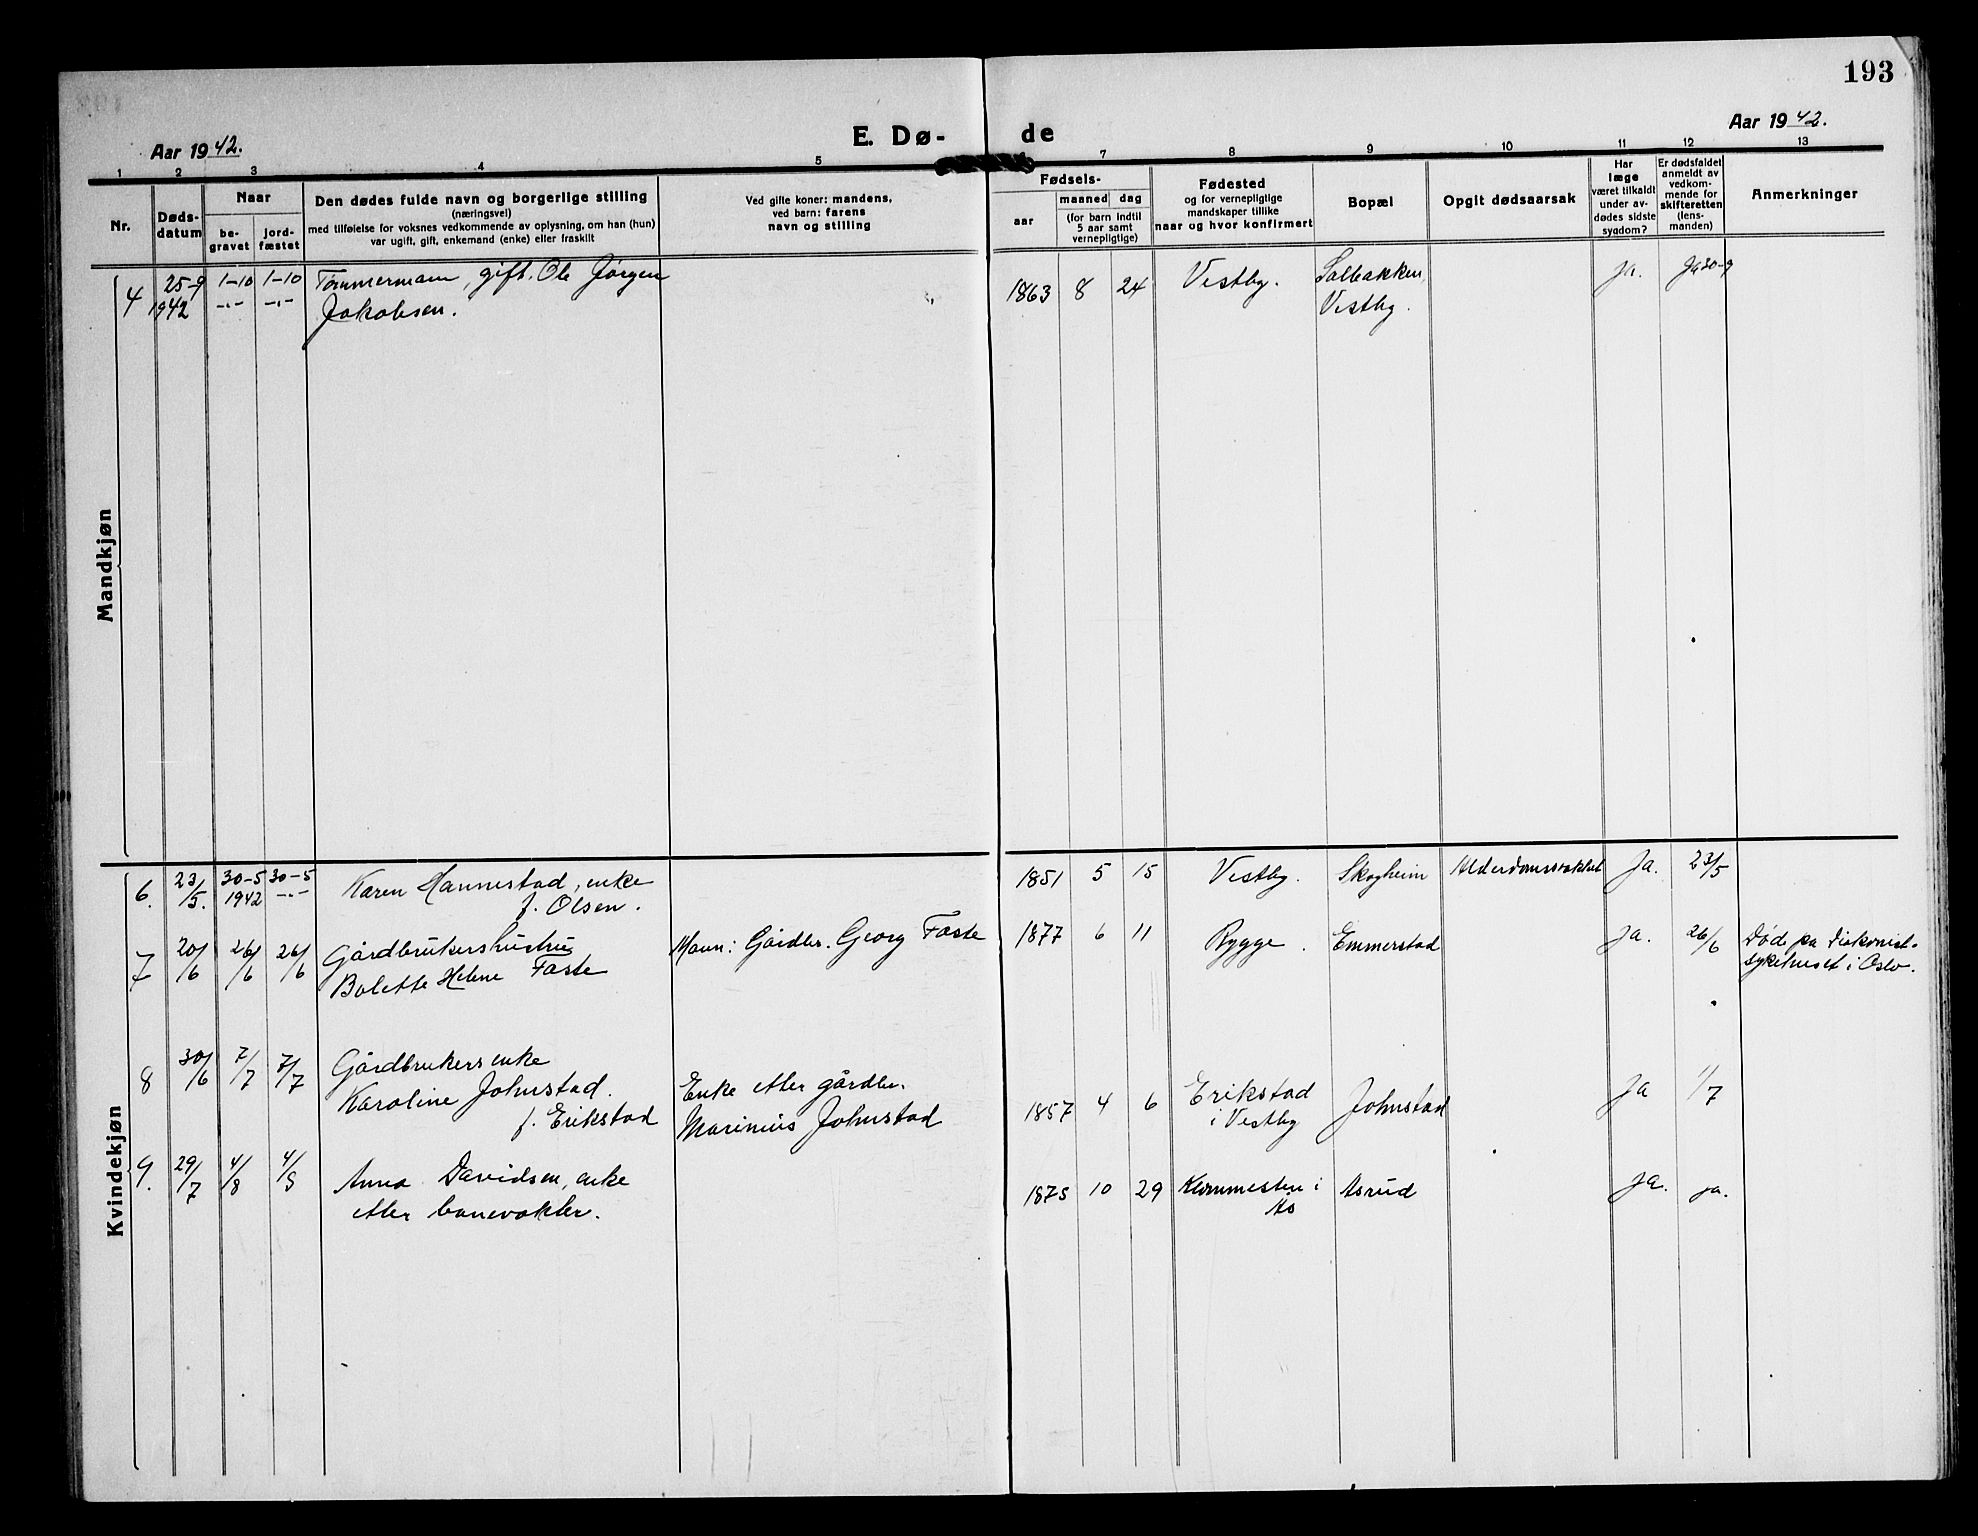 193
Aar 1942.
E. Dø-
de
Aar 1942.
1 2 3 4 5 7 8 9 10 11 12 13
Nr.
Døds-
datum
Naar
be-
gravet
jord-
fæstet
Den dødes fulde navn og borgerlige stilling
(næringsvei)
med tilføielse for voksnes vedkommende av oplysning, om han (hun)
var ugift, gift, enkemand (enke) eller fraskilt
Ved gifte koner: mandens,
ved barn: farens
navn og stilling
Fødsels-
aar
maaned dag
(for barn indtil
5 aar samt
vernepligtige)
Fødested
og for vernepligtige
mandskaper tillike
naar og hvor konfirmert
Bopæl
Opgit dødsaarsak
Har
læge
været tilkaldt
under av-
dødes sidste
sygdom?
Er dødsfaldet
anmeldt av
vedkom-
mende for
skifteretten
(lens-
manden)
Anmerkninger
Mandkjøn
4 25-9 1-10 1-10 Tømmermann, gift. Ole Jørgen 1863 8 24 Vestby. Solbakken, Ja. Ja 30-9
1942 -"- -"- Jakobsen. Vestby.
Kvindekjøn
6. 23/5. 30-5 30-5 Karen Hannestad, enke 1851 5 15 Vestby. Skogheim Alderdomssvakhet Ja. 23/5
1942 -"- f. Olsen.
7 20/6 26/6 26/6 Gårdbrukershustru Mann: Gårdbr. Georg Faste 1877 6 11 Rygge. Emmerstad Ja. 26/6 Død på Diakonist-
Bolette Helene Faste sykehuset i Oslo.
8 30/6 7/7 7/7 Gårdbrukersenke
Karoline Johnstad. Enke etter gårdbr. 1857 4 6 Erikstad Johnstad Ja 1/7
f. Erikstad Marinius Johnstad i Vestby
9. 29/7 4/8 4/8 Anna Davidsen, enke 1875 10 29 i Åsrud Ja. ja.
etter banevokter. Ås